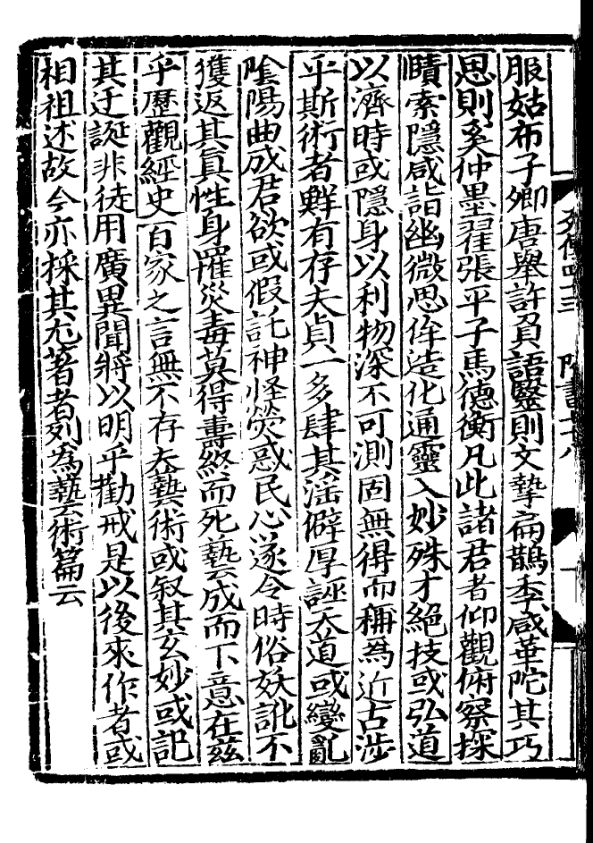 服姑布子卿唐舉許負語醫則文摯扁鵲季咸華陀其巧
思則奚仲墨翟張平子馬德衡凡此諸君者仰觀俯察探
賾索隱咸詣幽微思侔造化通靈入妙殊才絕技或弘道
以濟時或隱身以利物深不可測固無得而稱為近古涉
乎斯術者鮮有存夫貞一多肆其淫僻厚誣天道或變亂
陰陽曲成君欲或假託神怪熒惑民心遂令時俗妖訛不
獲返其真性身罹災毒莫得壽終而死藝成而下意在茲
乎歷觀經史百家之言無不存夫藝術或叙其玄妙或記
其迂誕非徒用廣異聞將以明乎勸戒是以後來作者或
相祖述故今亦採其尤著者列為藝術篇云